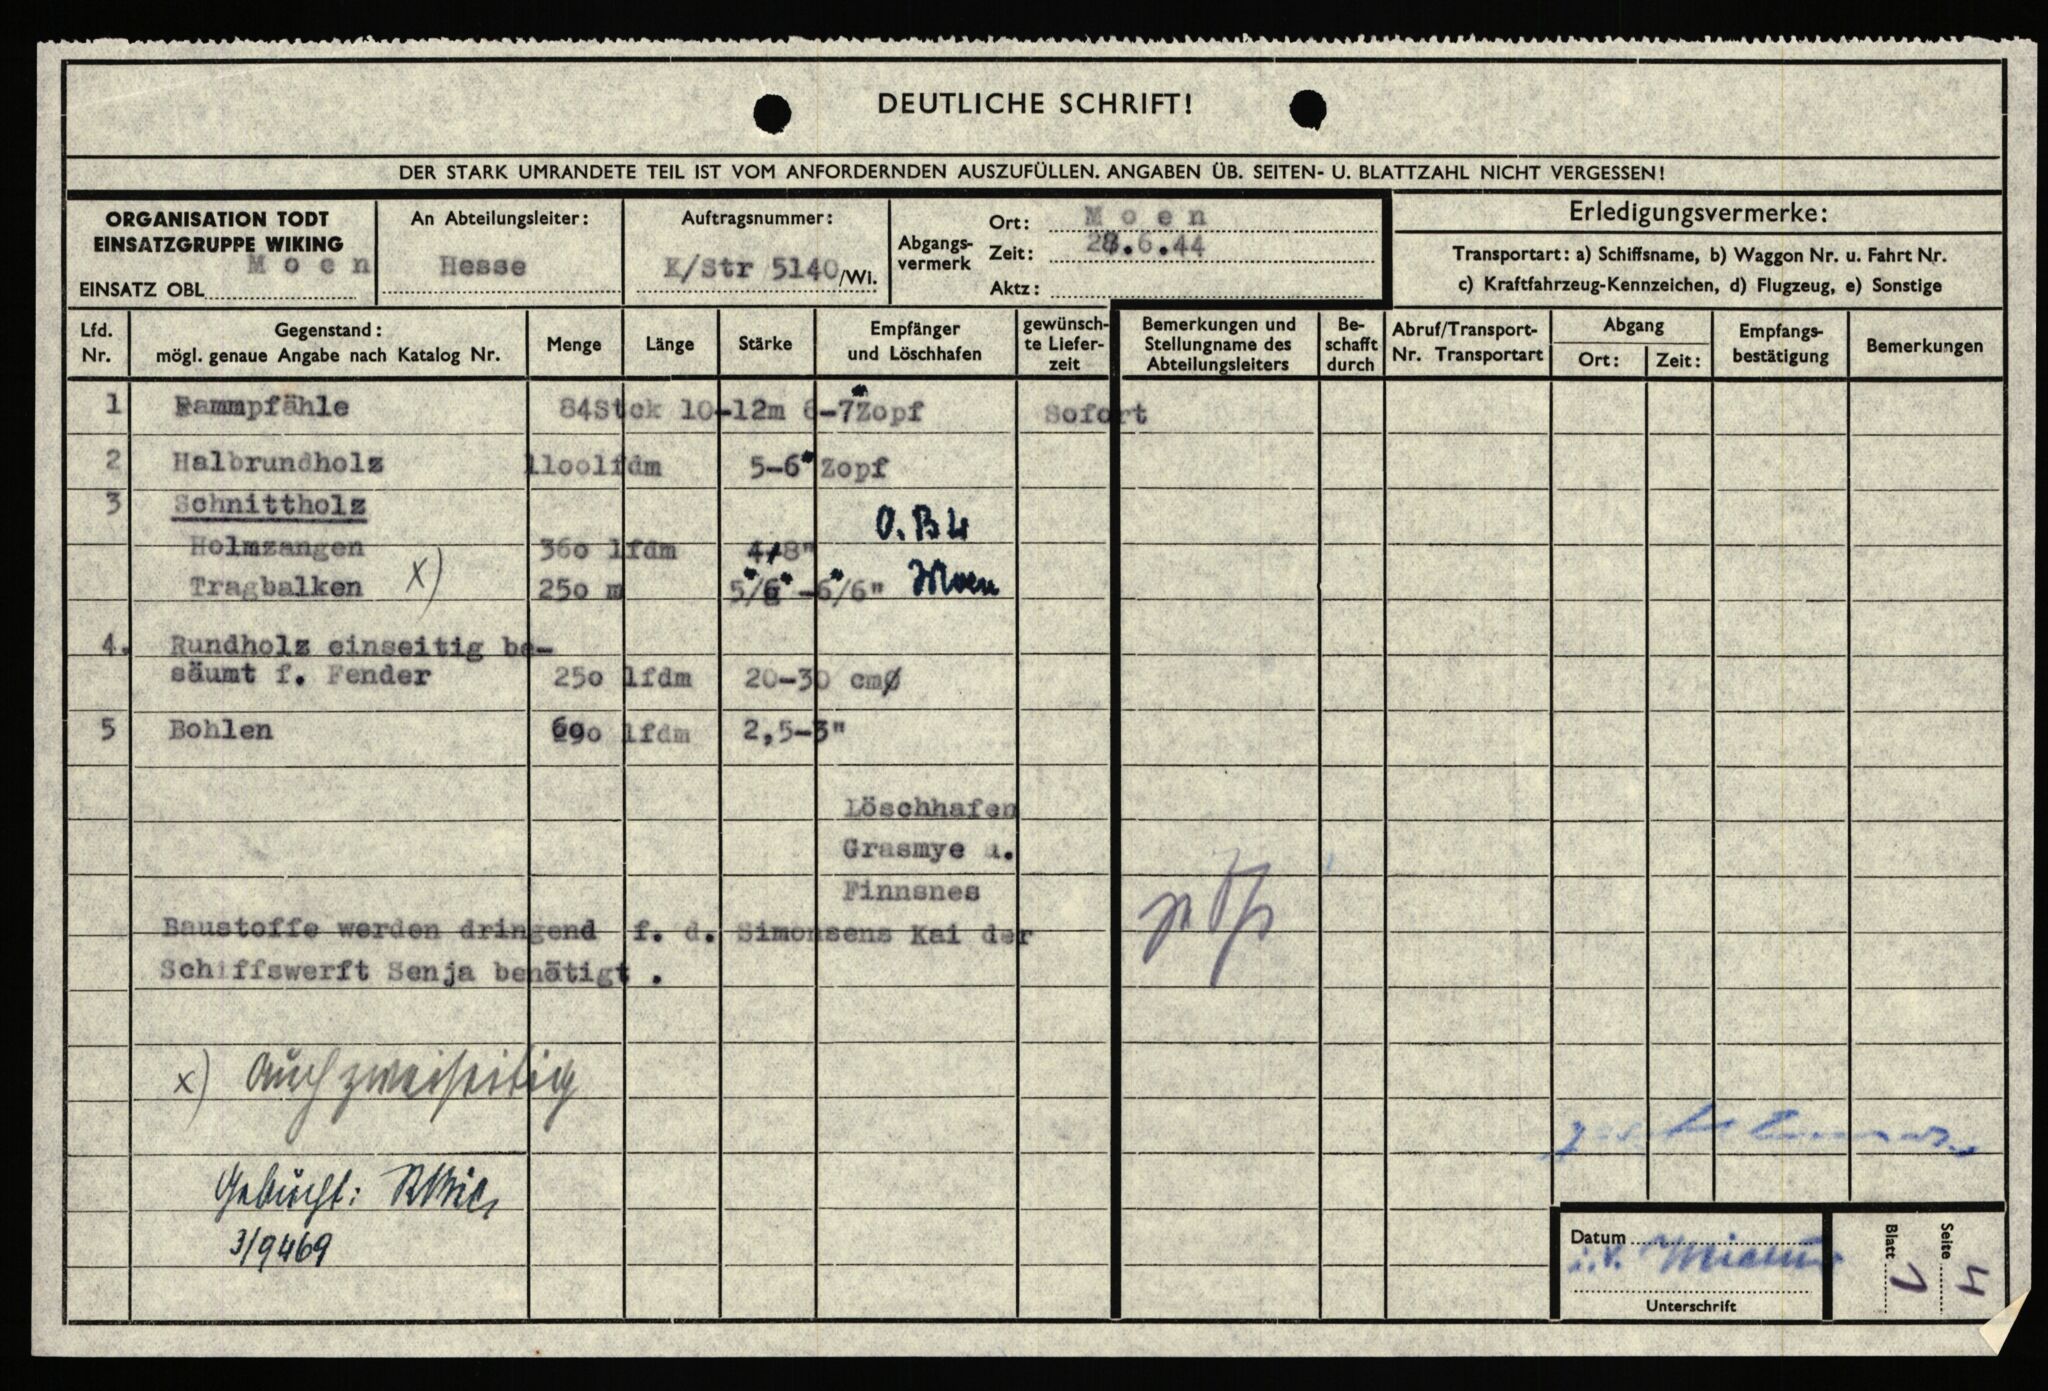 DEUTLICHE SCHRIFT!
DER STARK UMRANDETE TEIL IST VOM ANFORDERNDEN AUSZUFÜLLEN. ANGABEN ÜB. SEITEN- U. BLATTZAHL NICHT VERGESSEN!
ORGANISATION TODT
EINSATZGRUPPE WIKING
EINSATZ OBL Moen
An Abteilungsleiter:
Hesse
Auftragsnummer:
K/Str 5140/Wi.
Abgangs-
vermerk
Ort: Moen
Zeit: .6.44
Aktz:
Erledigungsvermerke:
Transportart: a) Schiffsname, b) Waggon Nr. u. Fahrt Nr.
c) Kraftfahrzeug-Kennzeichen, d) Flugzeug, e) Sonstige
Lfd.
Nr.
Gegenstand:
mögl. genaue Angabe nach Katalog Nr.
Menge
Länge
Stärke
Empfänger
und Löschhafen
gewünsch-
te Liefer-
zeit
Bemerkungen und
Stellungname des
Abteilungsleiters
Be-
schafft
durch
Abruf/Transport-
Nr. Transportart
Abgang
Ort:
Zeit:
Empfangs-
bestätigung
Bemerkungen
1 Rammpfähle 84Stck 10-12m 6-7"Zopf Sofort
2 Halbrundholz 11oolfdm 5-6" Zopf
3 Schnittholz
O.BL
Holmzangen 36o lfdm 4/8"
Tragbalken x) 25o m 5"/6"-6"/6" Moen
4. Rundholz einseitig be-
säumt f. Fender 25o lfdm 20-30 cmØ
5 Bohlen 600 lfdm 2,5-3"
Löschhafen
Grasmye u.
Finnsnes
Baustoffe werden dringend f. d. Simonsens Kai der
Schiffswerft Senja benätigt .
x) Auch zweiseitig
Gebucht:
3/9469
Datum
i.V.
Unterschrift
Seite 4
Blatt 1